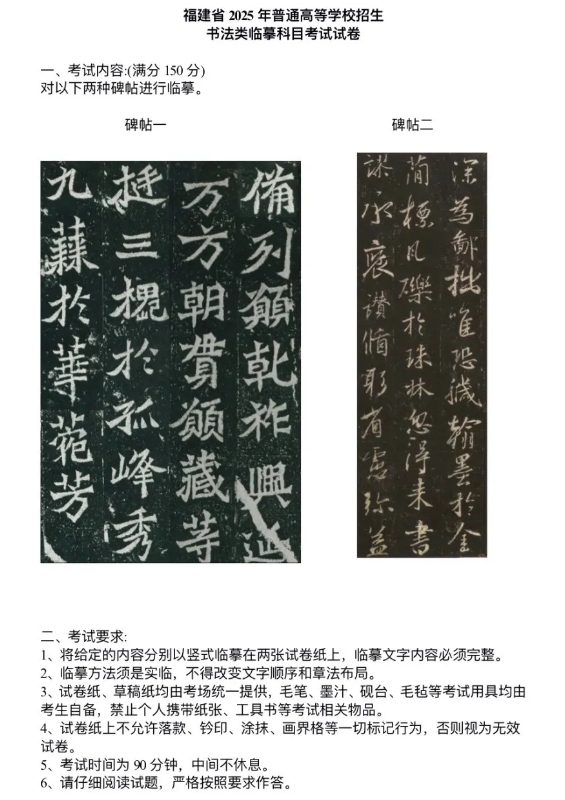 福建省 2025 年普通高等学校招生
书法类临摹科目考试试卷
一、考试内容:(满分 150 分)
对以下两种碑帖进行临摹。
碑帖一
備列願乾祚興延
万方朝貫願藏等
挺三槐於孤峰秀
九蕀於華菀芳
碑帖二
深為鄙拙唯恐穢翰墨於金
簡標瓦礫於珠林忽得来書
謬承褒讚循躬省慮彌益
二、考试要求:
1、将给定的内容分别以竖式临摹在两张试卷纸上，临摹文字内容必须完整。
2、临摹方法须是实临，不得改变文字顺序和章法布局。
3、试卷纸、草稿纸均由考场统一提供，毛笔、墨汁、砚台、毛毡等考试用具均由
考生自备，禁止个人携带纸张、工具书等考试相关物品。
4、试卷纸上不允许落款、钤印、涂抹、画界格等一切标记行为，否则视为无效
试卷。
5、考试时间为 90 分钟，中间不休息。
6、请仔细阅读试题，严格按照要求作答。